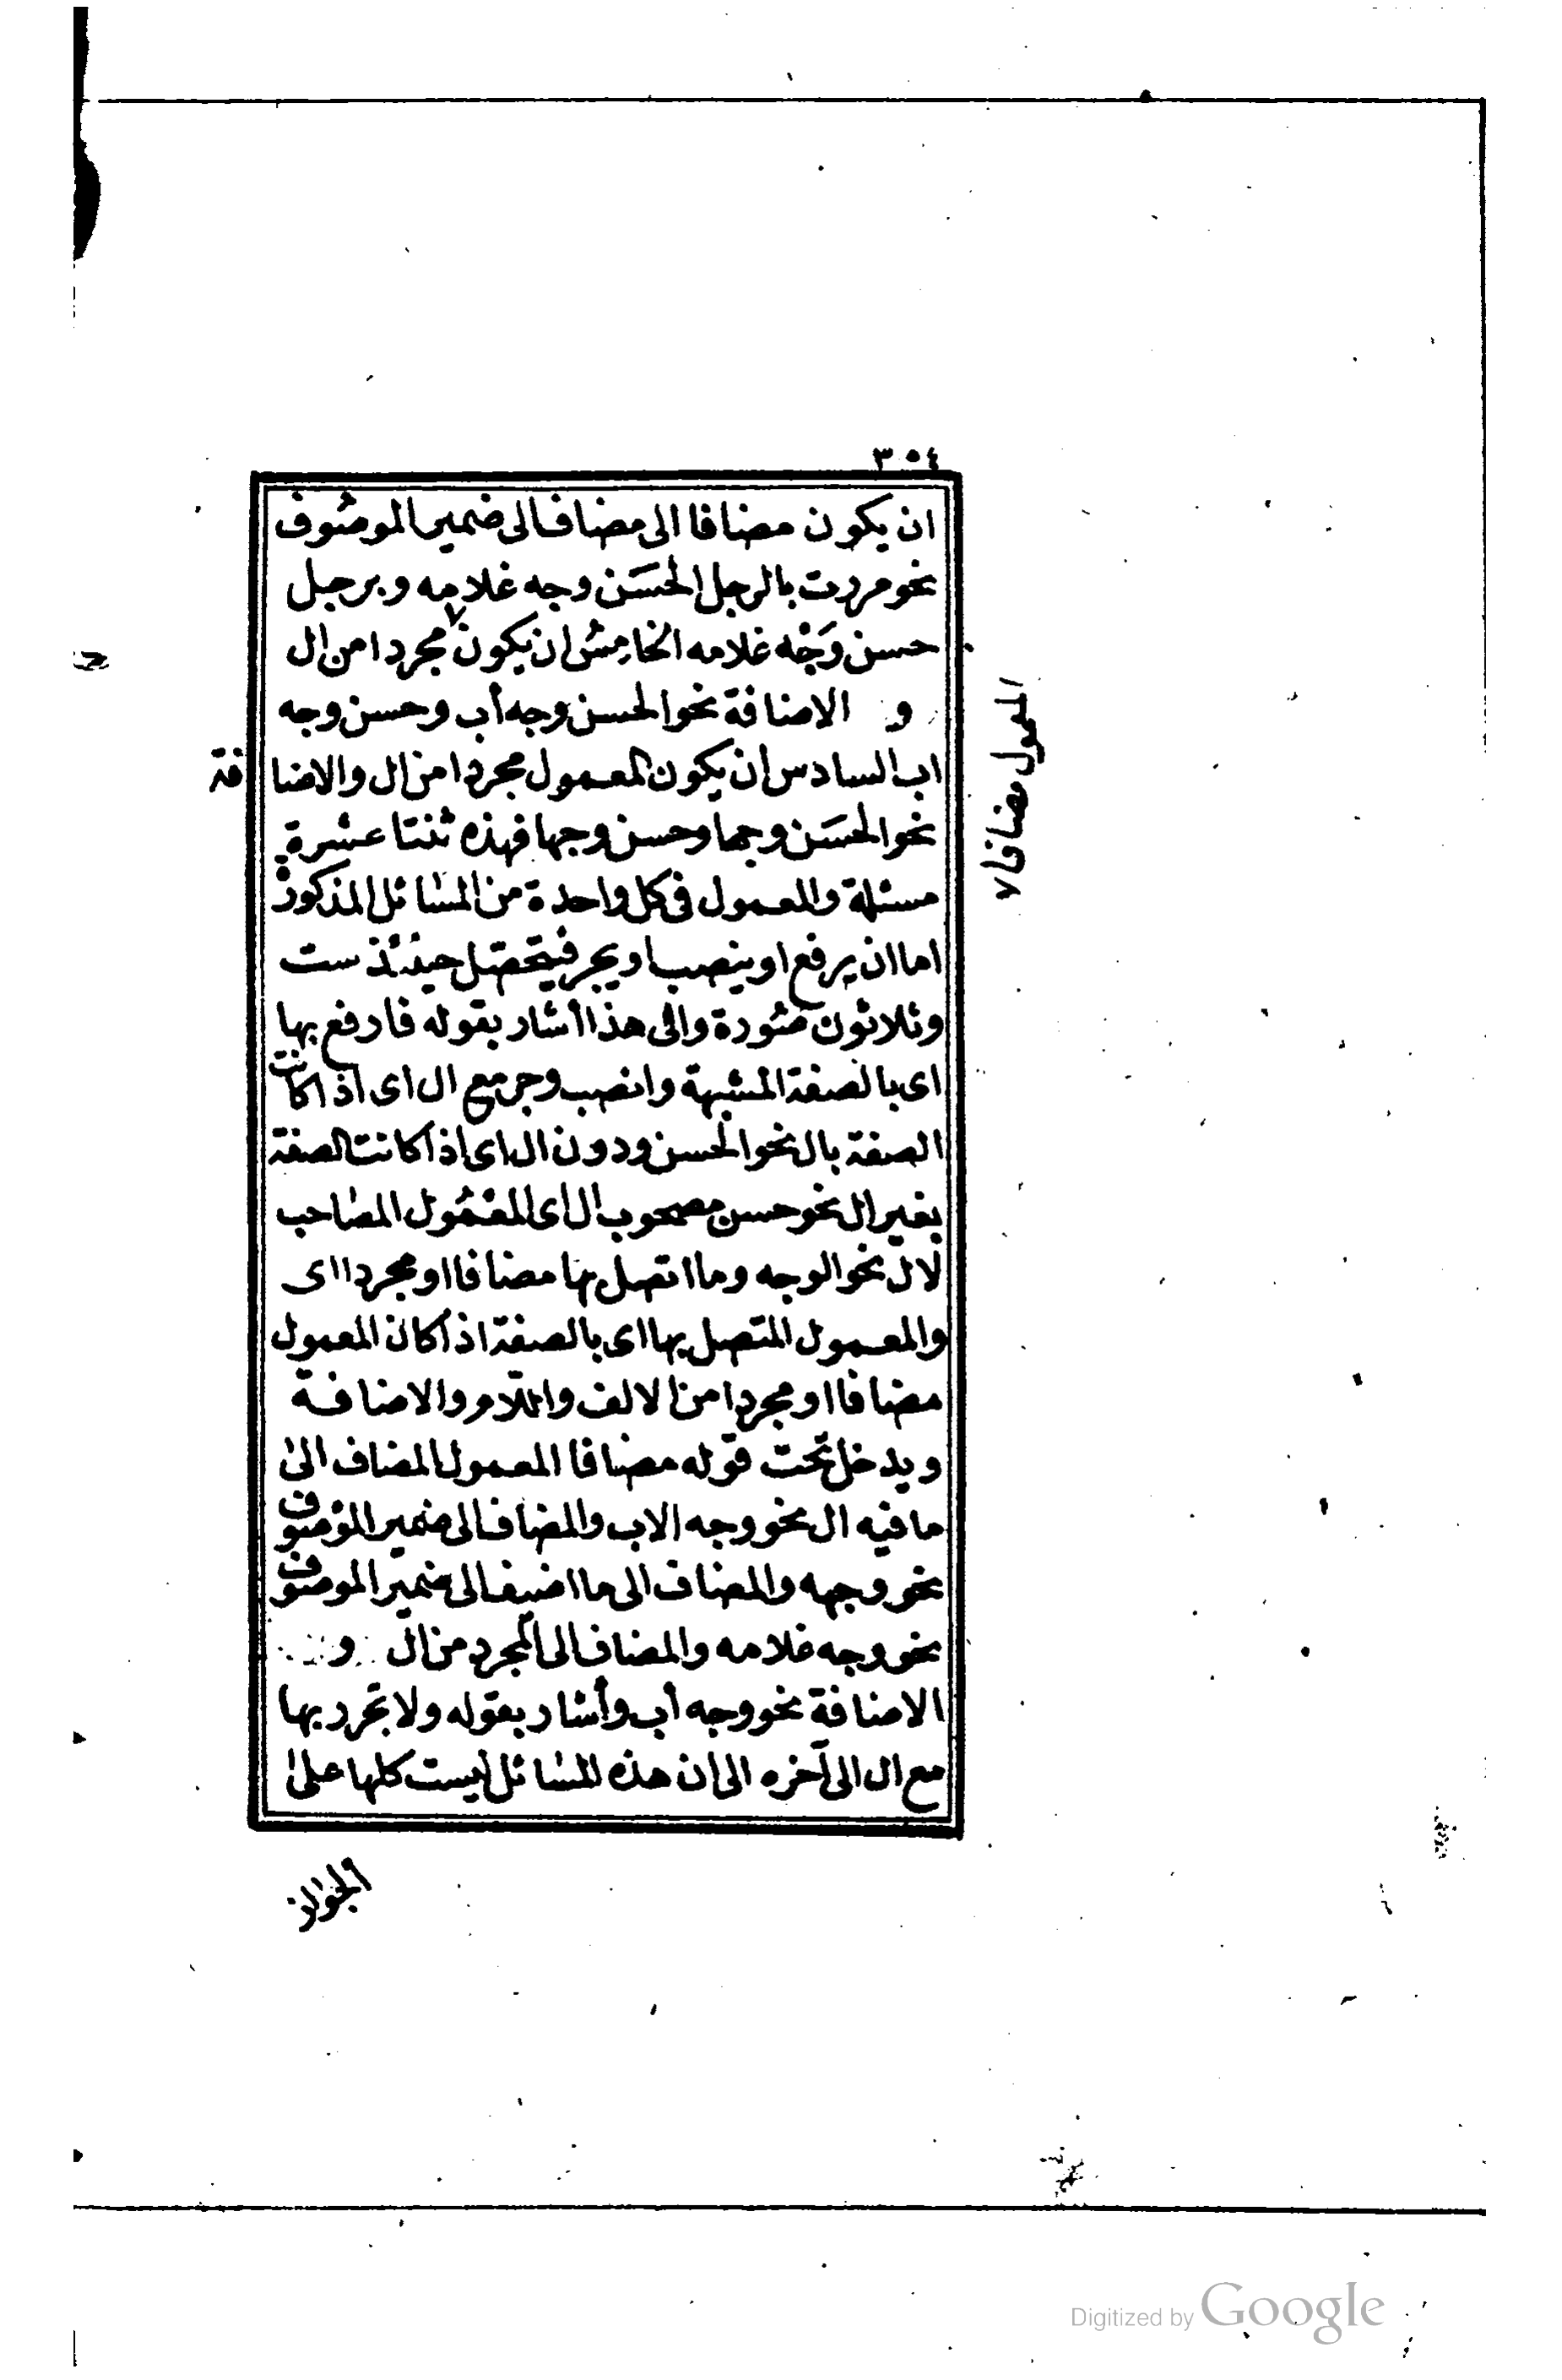 ٣٥٤
ان يكون مضافا الى مضاف الى ضمير الموصوف
نحو مررت بالرجل الحسَن وجه غلامه وبرجل
حسن وَجْه غلامه الخامس ان يكون ٧ مجردا من ال
و الاضافة نحو الحسن وجه أب وحسن وجه
اب السادس ان يكون المعمول مجردا من ال والاضافة
نحو الحسَن وجها وحسن وجها فهذه ثنتا عشرة
مسئلة والمعمول فى كل واحدة من المسائل المذكورة
اما ان يرفع او ينصب او يجر فيتحصل حينئذ ست
وثلاثون صورة والى هذا أشار بقوله فارفع بها
اى بالصفة المشبهة وانصب وجر مع ال اى اذا كانت
الصفة بال نحو الحسن ودون ال اى اذا كانت الصفة
بغير ال نحو حسن مصحوب ال اى المعمول المصاحب
لال نحو الوجه وما اتصل بها مضافا او مجردا اى
والمعمول المتصل بها اى بالصفة اذا كان المعمول
مضافا او مجردا من الالف واللام والاضافة
ويدخل تحت قوله مضافا المعمول المضاف الى
ما فيه ال نحو وجه الاب والمضاف الى ضمير الموصوف
نحو وجهه والمضاف الى ما اضيف الى ضمير الموصوف
نحو وجه غلامه والمضاف الى المجرد من ال و
الاضافة نحو وجه أب وأشار بقوله ولا تجرر بها
مع ال الى آخره الى ان هذه المسائل ليست كلها على
الجواز
المعمول مضافا ٧
Digitized by Google